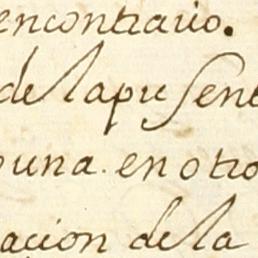 encontrario.
de la presene
una. en otro
acion de la